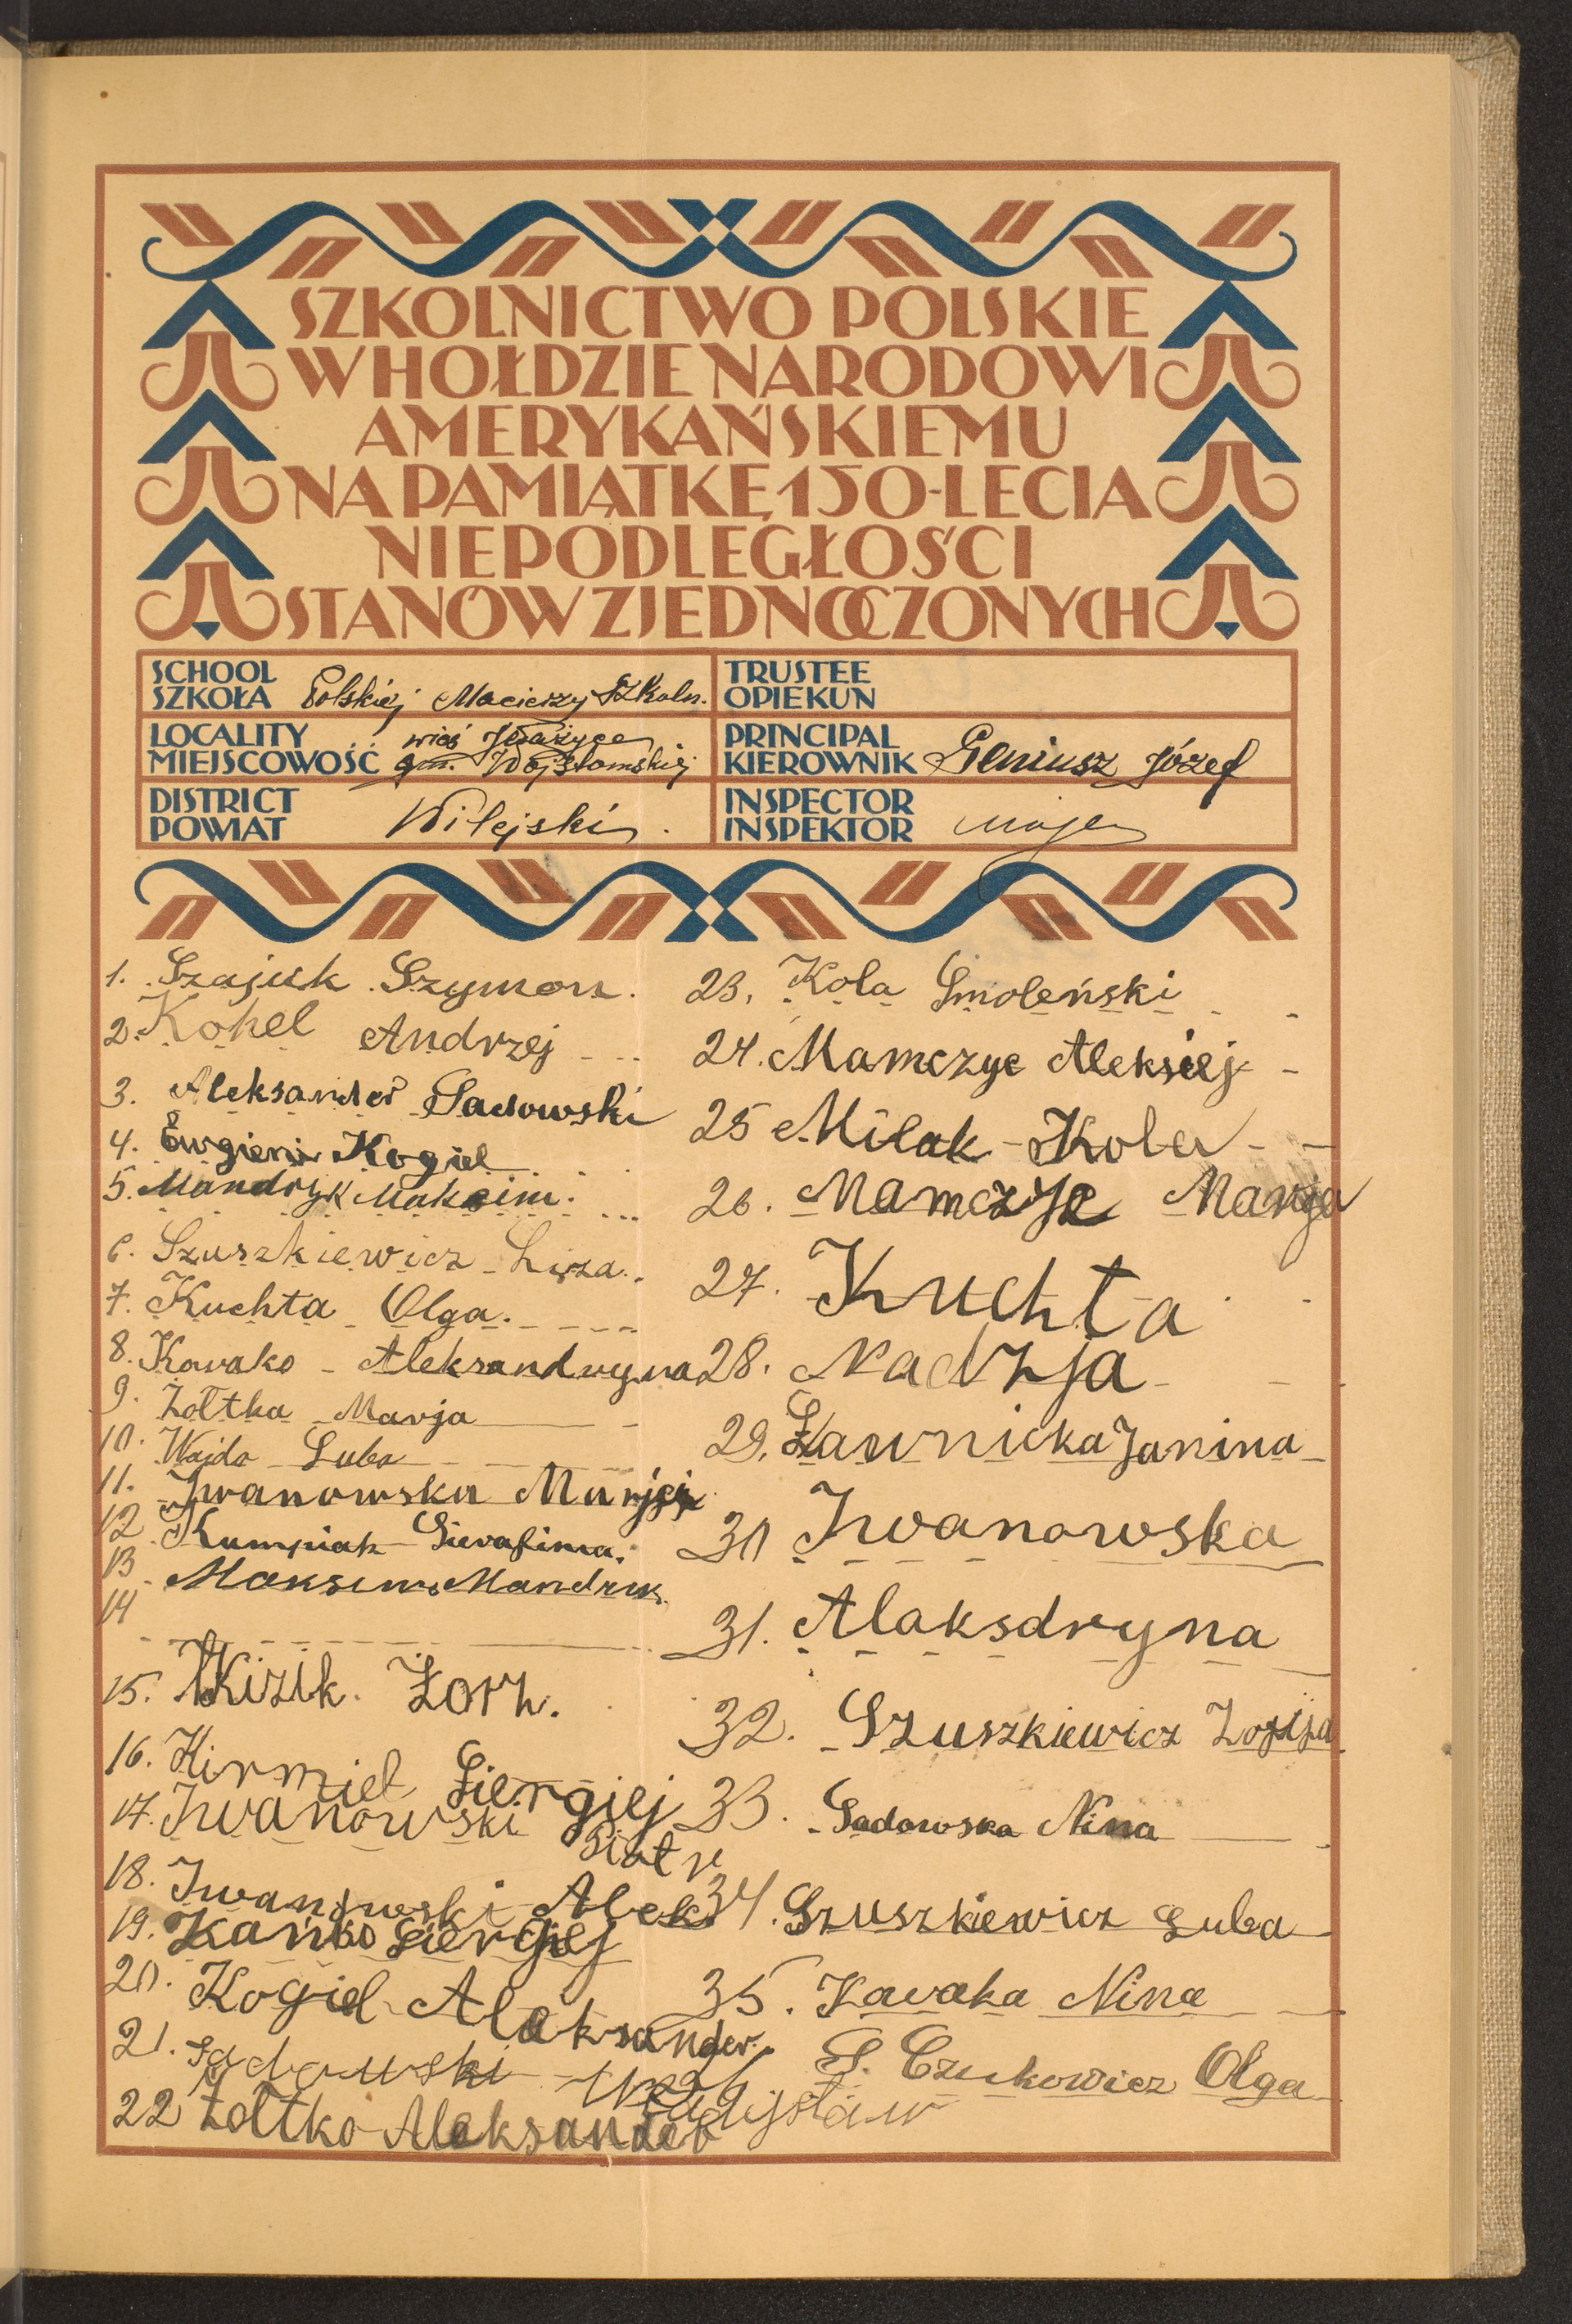 SZKOLNICTWO POLSKIE
W HOŁDZIE NARODOWI
AMERYKAŃSKIEMU
NA PAMIĄTKĘ 150-LECIA
NIEPODLEGŁOŚCI
STANÓW ZJEDNOCZONYCH
SCHOOL
SZKOŁA Polskiej Macierzy Szkoln.
TRUSTEE
OPIEKUN
LOCALITY
MIEJSCOWOŚĆ wieś
gm. Wojstomskiej
PRINCIPAL
KIEROWNIK Geniusz Józef
DISTRICT
POWIAT Wilejski
INSPECTOR
INSPEKTOR
1. Szajuk Szymon.
2. Kohel Andrzej
3. Aleksander Sadowski
4. Ewgieni Kogiel
5. Mandryk Maksim.
6. Szuszkiewicz Liza.
7. Kuchta Olga.
8. Kawako - Aleksandryna
9. Żołtka Marja
10. Wajda Luba
11. Iwanowska Marja
12 Kumpiak Sierafima.
13 Maksim Mandruk
14
15. Kizik Żorż.
16. Kirmiel Siergiej
17. Iwanowski Piotr
18. Iwanowski Alek
19. Kańko Siergiej
20. Kogiel Alaksander.
21. Sadowski Władysław
22 Żołtko Aleksander
23. Kola Smoleński
24. Mamczyc Aleksiej
25 Milak - Kola
26. Mamczyc Marja
27. Kuchta
28. Nadzja
29. Ławnicka Janina
30 Iwanowska
31. Alaksdryna
32. Szuszkiewicz Zofija
33. Sadowska Nina
34. Szuszkiewicz Luba
35. Kawaka Nina
Czukowicz Olga